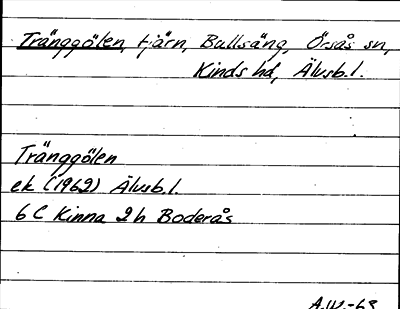 Tränggölen, tjärn, Bullsäng, Örsås sn,
Kinds hd, Älvsb.l.
Tränggölen
ek (1962) Älvsb.l.
6 C Kinna 2 h Boderås
A.W.-68